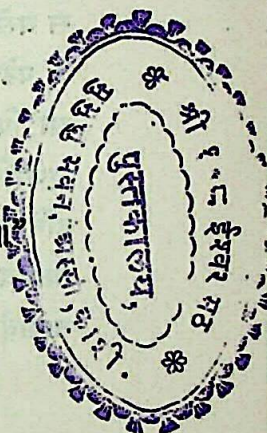 ❋ श्री १०८ ईश्वर मठ ❋
पुस्तकालय,
मुमुक्षु भवन, अस्सी, काशी.